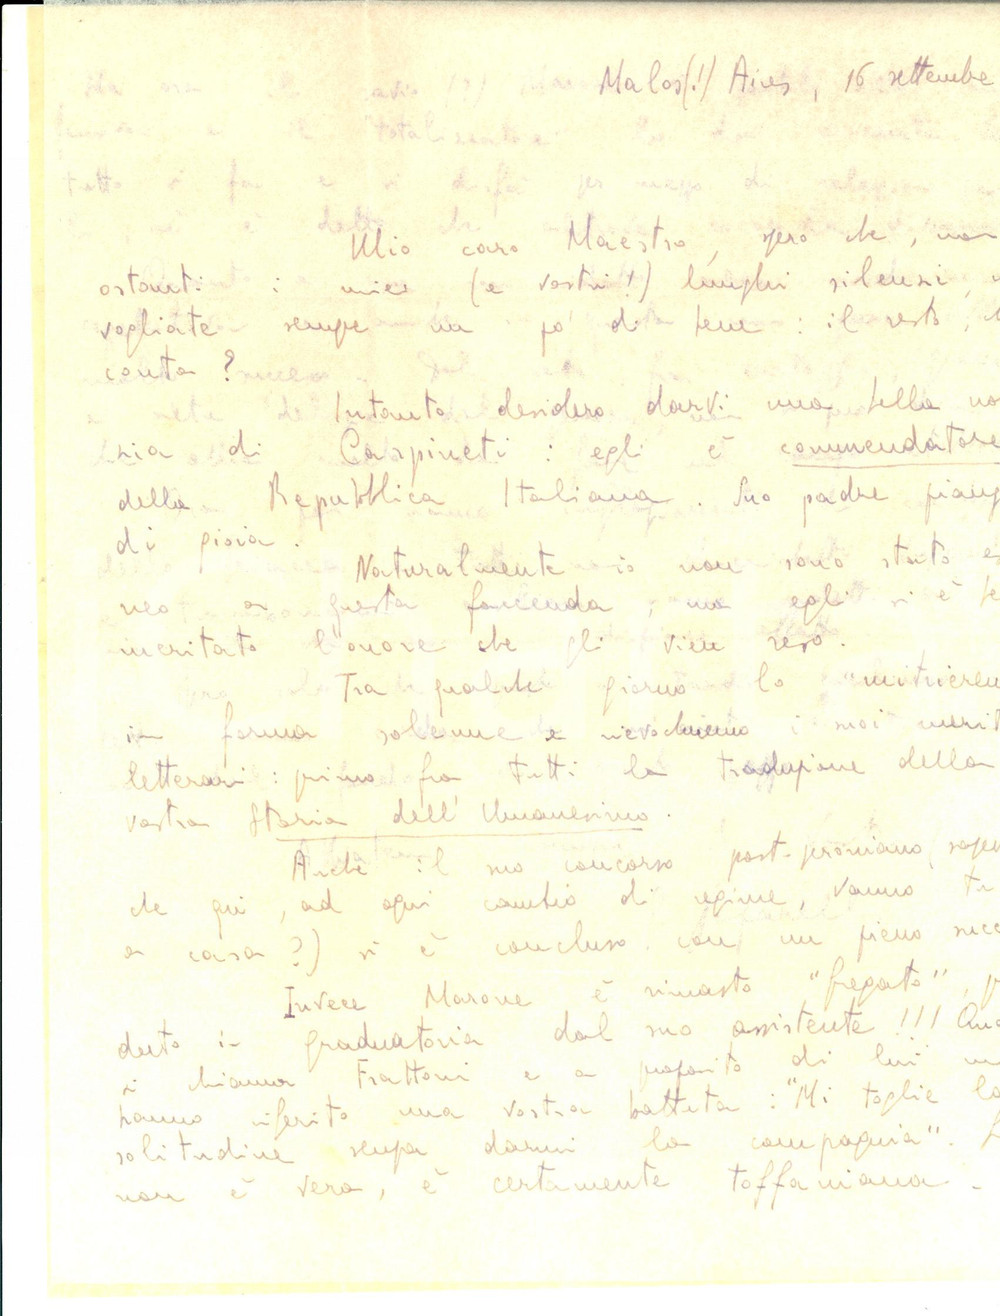 Malos(!) Aires, 16 settembre
Mio caro Maestro, spero che, non
ostanti i miei (e vostri!) lunghi silenzi,
vogliate sempre un po' di bene: il resto,
conta?
Intanto desidero darvi una bella no
zia di Carpineti: egli è commendatore
della Repubblica Italiana. Suo padre piang
di gioia.
Naturalmente io non sono stato es
neo a questa faccenda, ma egli si è be
meritato l'onore che gli viene reso.
Tra qualche giorno lo "mitrierem
in forma solenne e rievocheremo i suoi merit
letterari: primo fra tutti la traduzione della
vostra Storia dell'Umanesimo.
Anche il suo concorso post-peroniano, sape
che qui, ad ogni cambio di regime, vanno tu
a casa?) si è concluso con un pieno succ
Invece Marone è rimasto "fregato", p
duto in graduatoria dal suo assistente!!! Que
si chiama Frattoni e a proposito di lui m
hanno riferito una vostra battuta: "Mi toglie la
solitudine senza darmi la compagnia". S
non è vera, è certamente toffaniana.